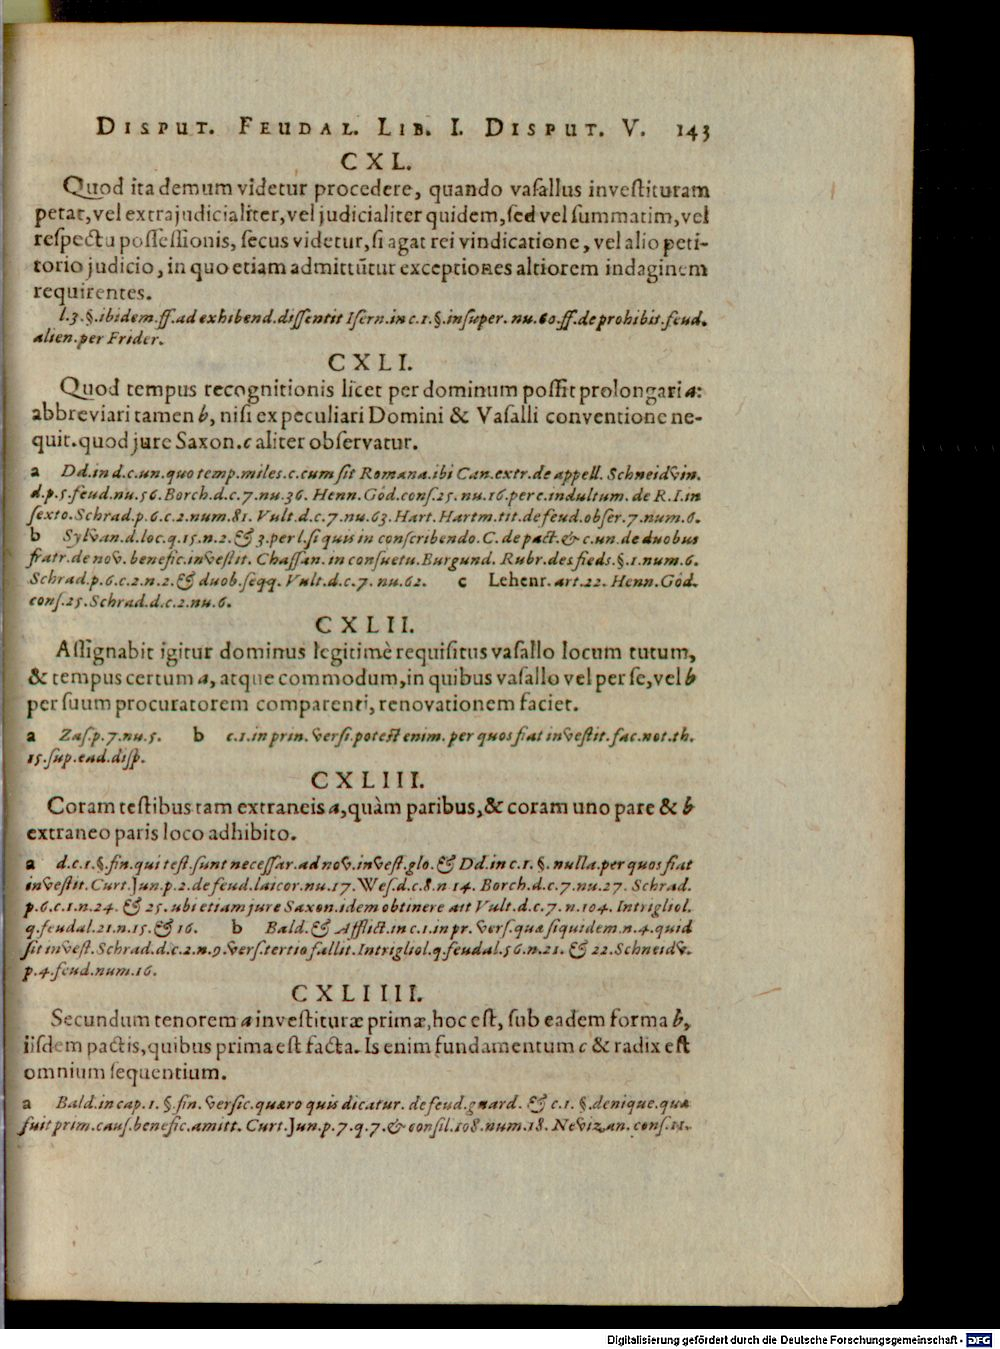 DISPUT. FEUDAL. LIB. I. DISPUT. V. 143
CXL.
Quod ita demum videtur procedere, quando vasallus investituram
petat, vel extrajudicialiter, vel judicialiter quidem, sed vel summatim, vel
respectu possessionis, secus videtur, si agat rei vindicatione, vel alio peti-
torio judicio, in quo etiam admittūtur exceptiones altiorem indaginem
requirentes.
l.3.§.ibidem.ff.ad exhibend.dissentit Isern.in c.1.§.insuper. nu.60.ff.de prohibit.feud.
alien.per Frider.
CXLI.
Quod tempus recognitionis licet per dominum possit prolongari a:
abbreviari tamen b, nisi ex peculiari Domini & Vasalli conventione ne-
quit. quod jure Saxon. c aliter observatur.
a Dd.in d.c.un.quo temp.miles.c.cum sit Romana.ibi Can.extr.de appell. Schneidvin.
d.p.5.feud.nu.56. Borch.d.c.7.nu.36. Henn. Göd.cons.25. nu.16.per c.indultum. de R.I.in
sexto. Schrad.p.6.c.2.num.81. Vult.d.c.7.nu.63. Hart. Hartm.tit.de feud.obser.7.num.6.
b Sylvan.d.loc.q.15.n.2. & 3.per l.si quis in conscribendo. C. de pact. & c.un.de duobus
fratr.de nov. benefic.investit. Chassan. in consuetu. Burgund. Rubr.des fieds.§.1.num.6.
Schrad.p.6.c.2.n.2. & duob.seqq. Vult.d.c.7. nu.62. c Lehenr. art.22. Henn.Göd.
cons.25. Schrad.d.c.2.nu.6.
CXLII.
Assignabit igitur dominus legitimè requisitus vasallo locum tutum,
& tempus certum a, atque commodum, in quibus vasallo vel per se, vel b
per suum procuratorem comparenti, renovationem faciet.
a Zas.p.7.nu.5. b c.1.in prin. versi.potest enim. per quos fiat investit.fac.not.th.
15.sup.ead.disp.
CXLIII.
Coram testibus tam extraneis a, quàm paribus, & coram uno pare & b
extraneo paris loco adhibito.
a d.c.1.§.fin.qui test.sunt necessar.ad nov.invest.glo. & Dd.in c.1. §. nulla.per quos fiat
investit. Curt. Jun.p.2.de feud.laicor.nu.17. Wes.d.c.8.n 14. Borch.d.c.7.nu.27. Schrad.
p.6.c.1.n.24. & 25. ubi etiam jure Saxon.idem obtinere ait Vult.d.c.7. n.104. Intrigliol.
q.feudal.21.n.15. & 16. b Bald. & Afflict.in c.1.in pr. vers.quæ siquidem.n.4.quid
sit invest. Schrad.d.c.2.n.9 vers.tertio fallit. Intrigliol.q.feudal.56.n.21. & 22. Schneidv.
p.4.feud.num.16.
CXLIIII.
Secundum tenorem a investituræ primæ, hoc est, sub eadem forma b,
iisdem pactis, quibus prima est facta. Is enim fundamentum c & radix est
omnium sequentium.
a Bald.in cap.1. §.fin. versic.quæro quis dicatur. de feud.guard. & c.1. §.denique.quæ
fuit prim.caus.benefic.amitt. Curt. Jun.p.7.q.7. & consil.108.num.18. Nevizan. cons.11.
Digitalisierung gefördert durch die Deutsche Forschungsgemeinschaft - DFG